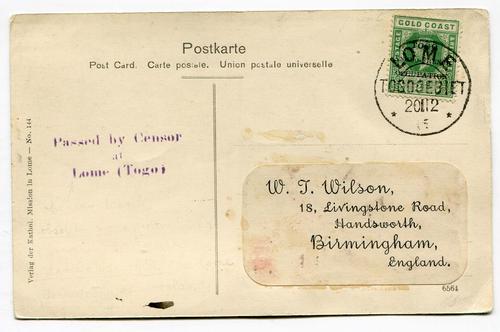 Postkarte
Post Card. Carte postale. Union postale universelle
GOLD COAST
LOME
OCCUPATION
TOGOGEBIET
Passed by Censor
at
Lome (Togo)
W. T. Wilson,
18, Livingstone Road,
Handsworth,
Birmingham,
England.
6564
Verlag der Kathol. Mission in Lome — No. 144